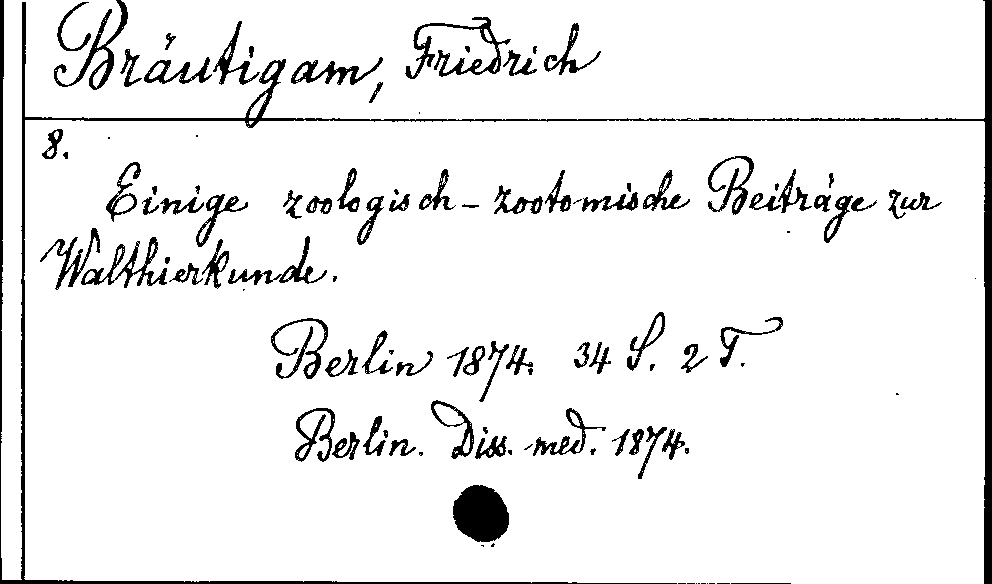 Bräutigam, Friedrich
8.
Einige zoologisch-zootomische Beiträge zur
Walthierkunde.
Berlin 1874. 34 S. 2 T.
Berlin. Diss. med. 1874.